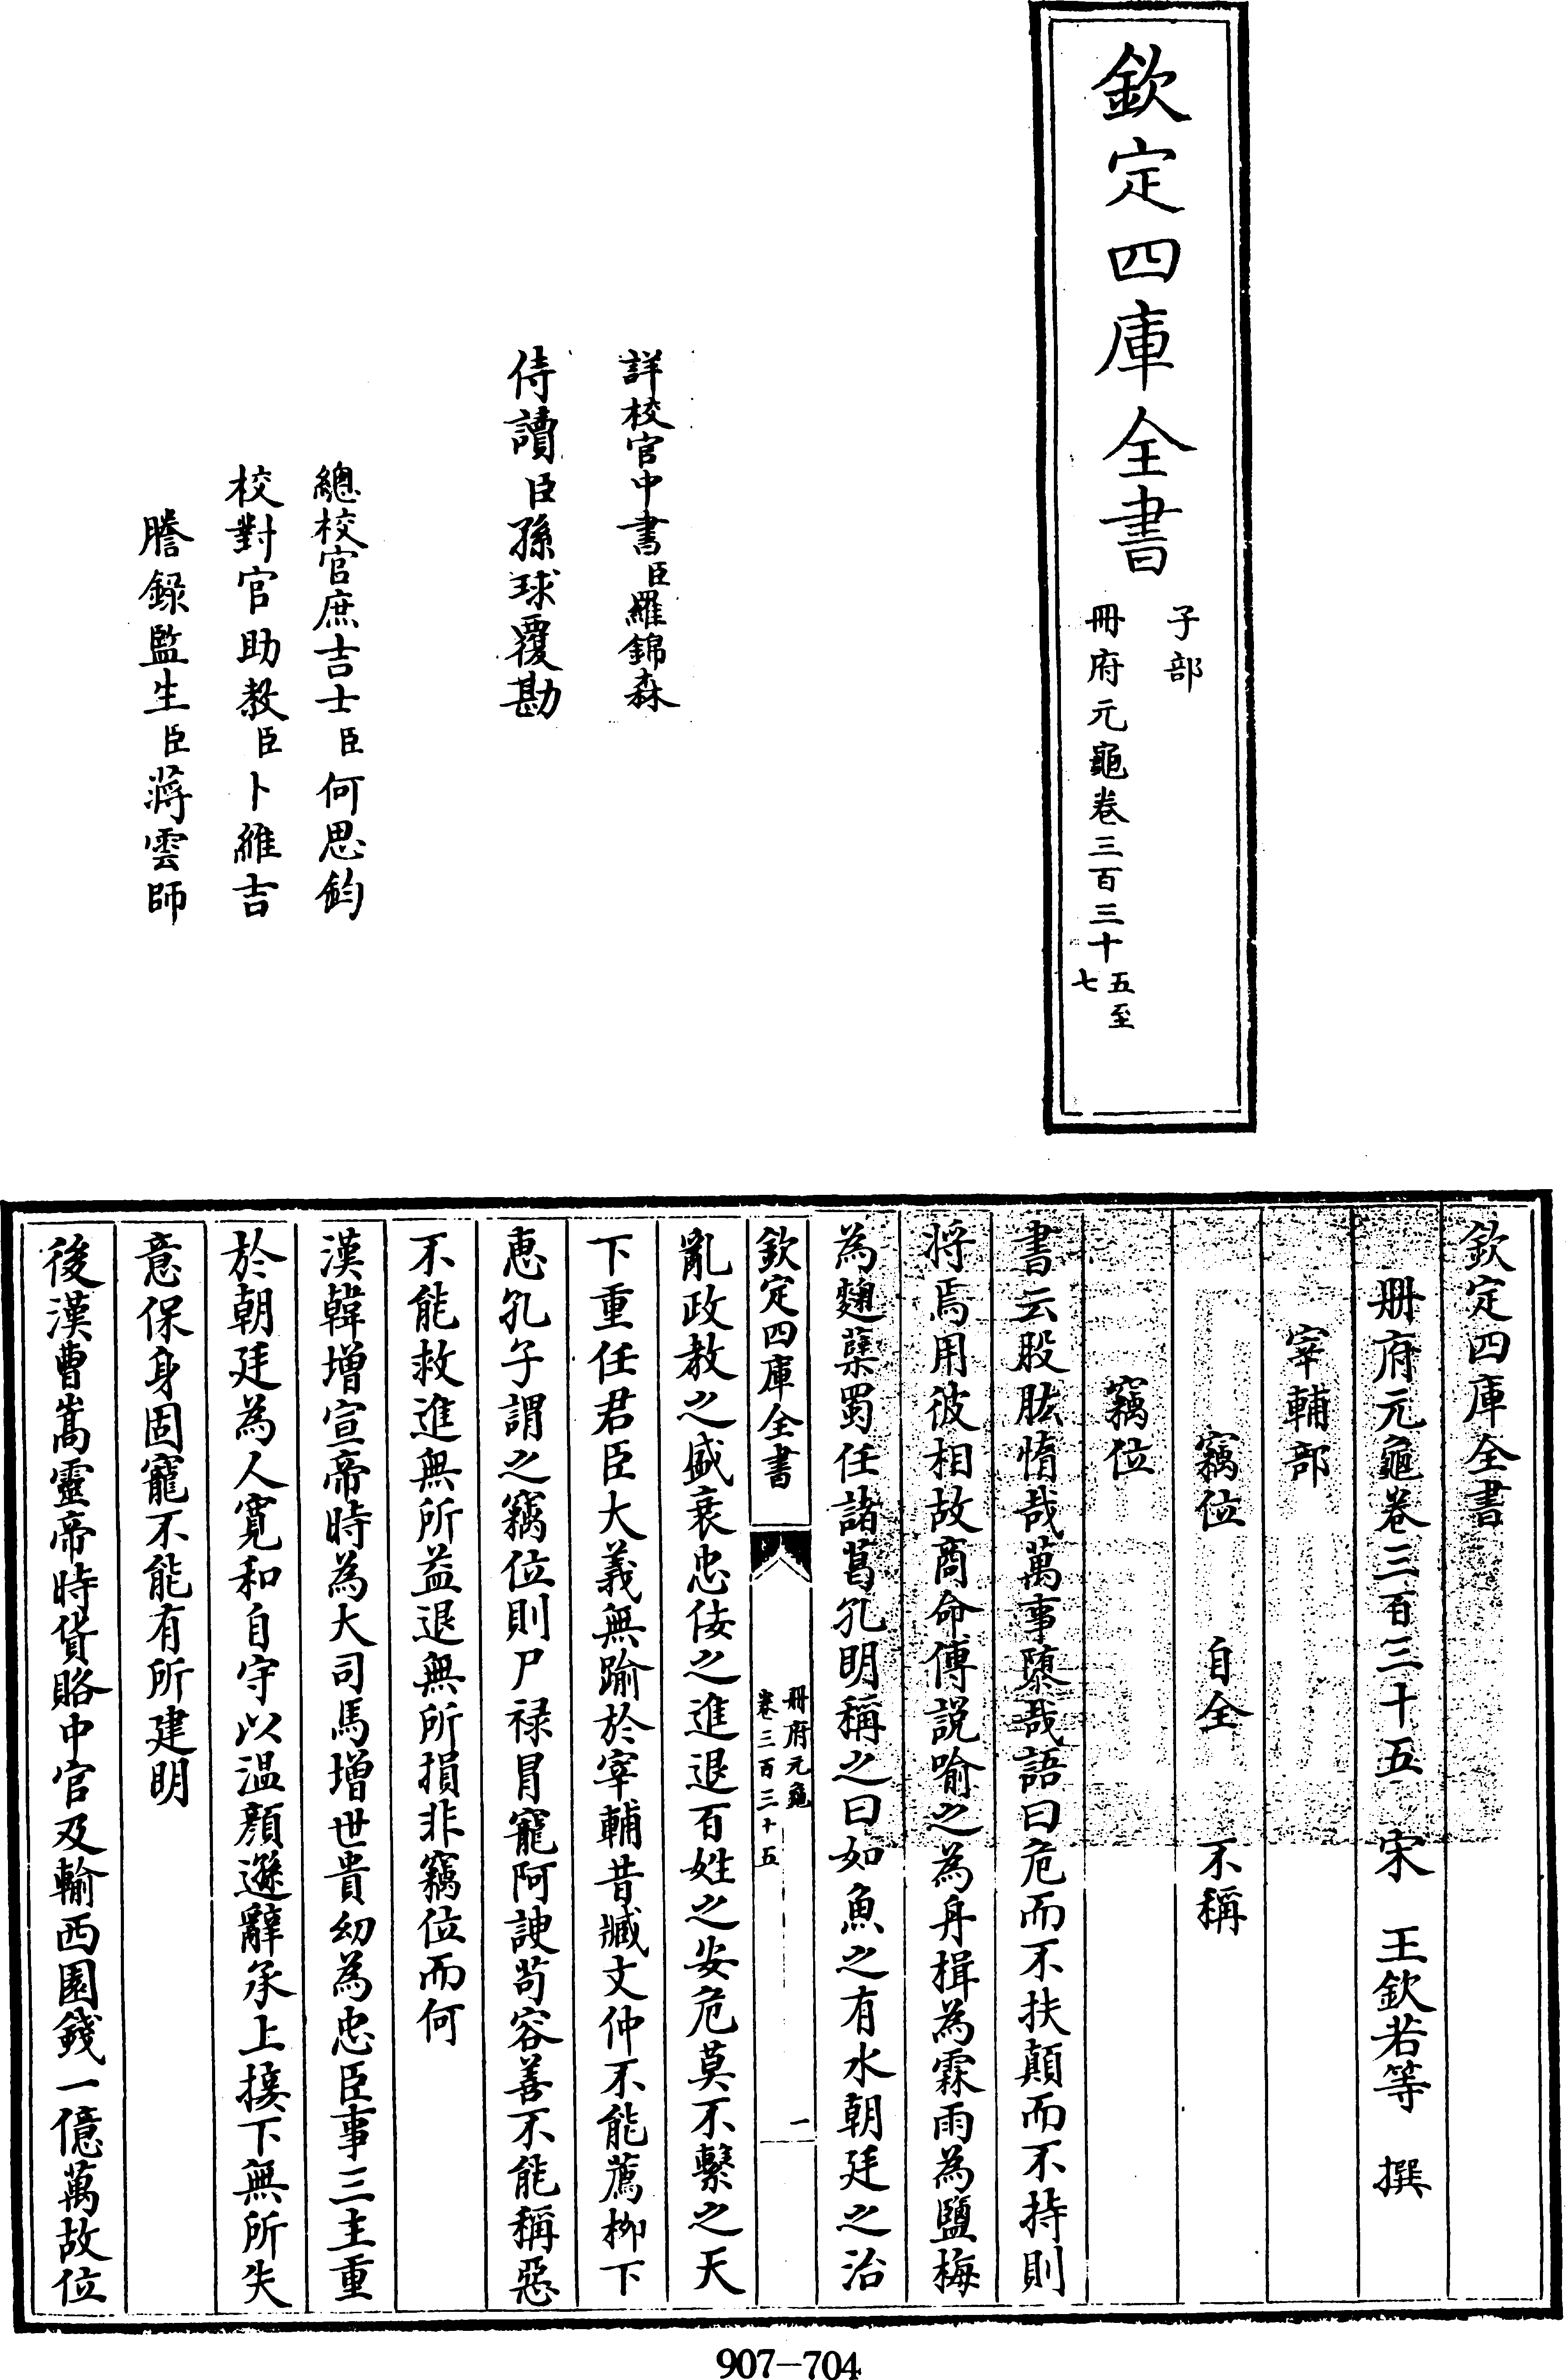 欽定四庫全書
子部
冊府元龜卷三百三十五至
七
詳校官中書臣羅錦森
侍讀臣孫球覆勘
總校官庶吉士臣何思鈞
校對官助教臣卜維吉
謄錄監生臣蔣雲師
欽定四庫全書
冊府元龜卷三百三十五 宋 王欽若等 撰
宰輔部
竊位 自全 不稱
竊位
書云股肱惰哉萬事墮哉語曰危而不扶顛而不持則
將焉用彼相故商命傅說喻之為舟楫為霖雨為鹽梅
為麴糵蜀任諸葛孔明稱之曰如魚之有水朝廷之治
欽定四庫全書
冊府元龜
卷三百三十五
一
亂政教之盛衰忠佞之進退百姓之安危莫不繫之天
下重任君臣大義無踰於宰輔昔臧文仲不能薦柳下
惠孔子謂之竊位則尸祿冒寵阿諛苟容善不能稱惡
不能救進無所益退無所損非竊位而何
漢韓增宣帝時為大司馬增世貴幼為忠臣事三主重
於朝廷為人寬和自守以溫顏遜辭承上接下無所失
意保身固寵不能有所建明
後漢曹嵩靈帝時貨賂中官及輸西園錢一億萬故位
907-704